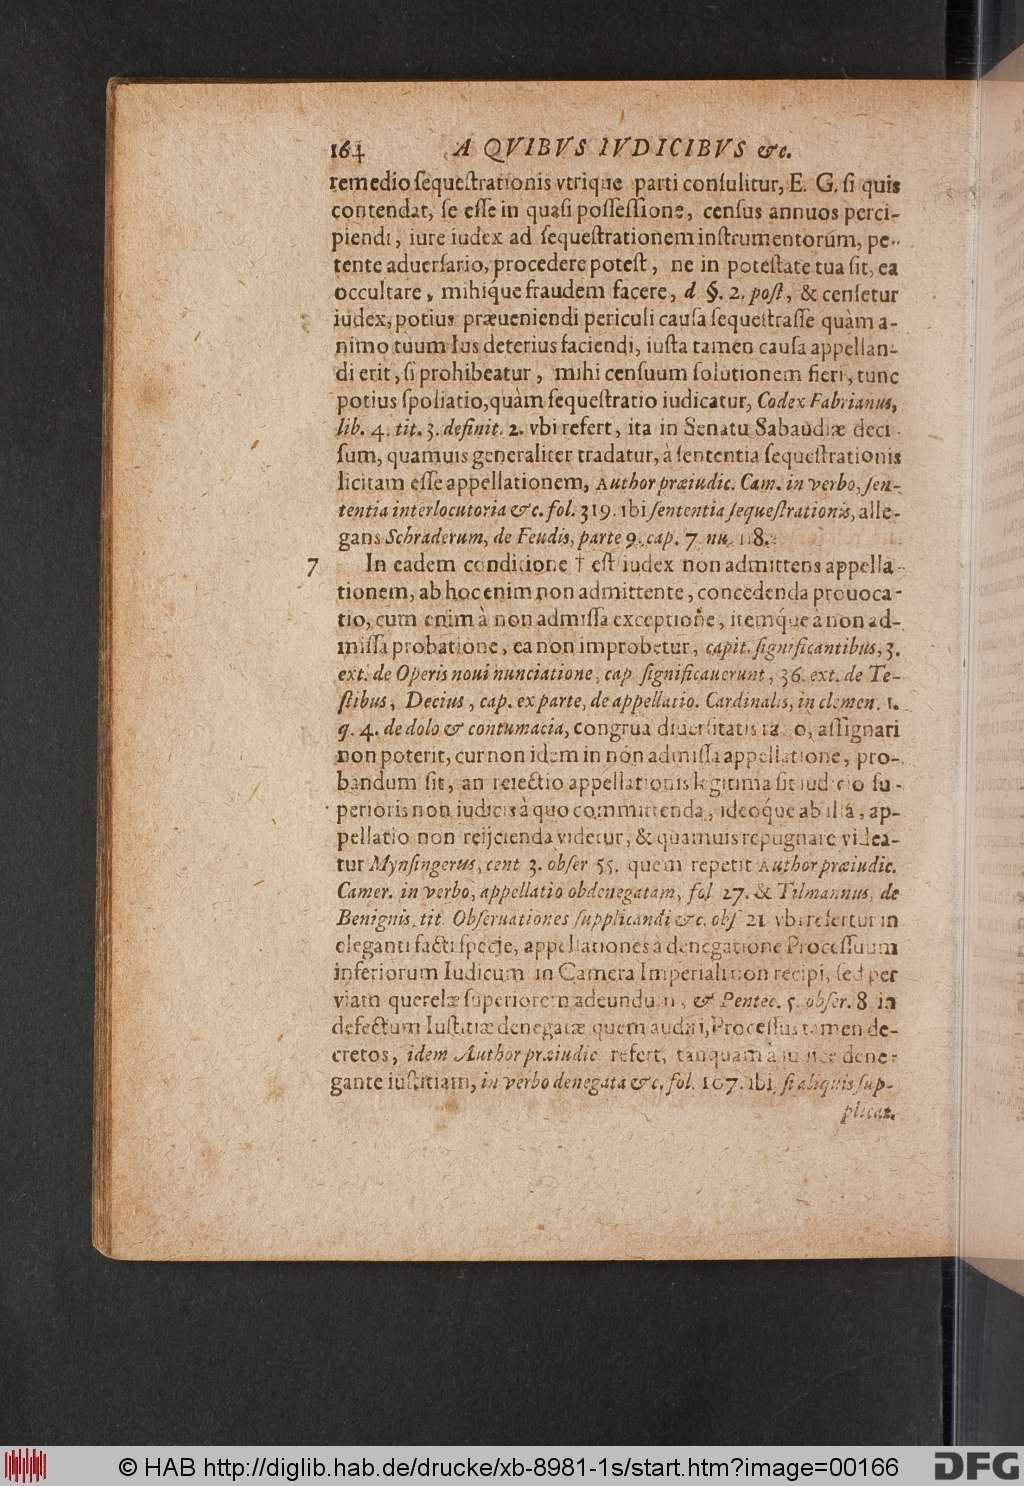 164 A QVIBVS IVDICIBVS &c.
remedio ſequeſtrationis vtrique parti conſulitur, E. G. ſi quis
contendat, ſe eſſe in quaſi poſſeſſione, cenſus annuos perci-
piendi, iure iudex ad ſequeſtrationem inſtrumentorúm, pe-
tente aduerſario, procedere poteſt, ne in poteſtate tua ſit, ea
occultare, mihiq́ue fraudem facere, d §. 2. poſt, & cenſetur
iudex, potius præueniendi periculi cauſa ſequeſtraſſe quàm a-
nimo tuum Ius deterius faciendi, iuſta tamen cauſa appellan-
di erit, ſi prohibeatur, mihi cenſuum ſolutionem fieri, tunc
potius ſpoliatio, quàm ſequeſtratio iudicatur, Codex Fabrianus,
lib. 4. tit. 3. definit. 2. vbi refert, ita in Senatu Sabaudiæ deci
ſum, quamuis generaliter tradatur, à ſententia ſequeſtrationis
licitam eſſe appellationem, Author præiudic. Cam. in verbo, ſen-
tentia interlocutoria &c. fol. 319. ibi ſententia ſequeſtrationis, alle-
gans Schraderum, de Feudis, parte 9. cap. 7 nu. 118.
7 In eadem conditione † eſt iudex non admittens appella-
tionem, ab hoc enim non admittente, concedenda prouoca-
tio, cum enim à non admiſſa exceptione, itemq́ue à non ad-
miſſa probatione, ea non improbetur, capit. ſignificantibus, 3.
ext. de Operis noui nunciatione, cap ſignificauerunt, 36. ext. de Te-
ſtibus, Decius, cap. ex parte, de appellatio. Cardinalis, in clemen. 1.
q. 4. de dolo & contumacia, congrua diuerſitatis ra o, aſſignari
non poterit, cur non idem in non admiſſa appellatione, pro-
bandum ſit, an reiectio appellationis legitima ſit iud c o ſu-
perioris non iudicis à quo committenda, ideoq́ue ab illa, ap-
pellatio non reijcienda videtur, & quamuis repugnare videa-
tur Mynſingerus, cent 3. obſer 55. quem repetit Author præiudic.
Camer. in verbo, appellatio obdenegatam, fol 27. & Tilmannus, de
Benignis, tit. Obſeruationes ſupplicandi &c. obſ 21 vbi refertur in
eleganti facti ſpecie, appellationes à denegatione Proceſſuum
inferiorum Iudicum in Camera Imperiali non recipi, ſed per
viam querelæ ſuperiorem adeundum, & Pentec. 5. obſer. 8 in
defectum Iuſtitiæ denegatæ quem audiui, Proceſſus tamen de-
cretos, idem Author præiudic refert, tanquam à iudice dene-
gante iuſtitiam, in verbo denegata &c. fol. 107. ibi, ſi aliquis ſup-
plicat.
© HAB http://diglib.hab.de/drucke/xb-8981-1s/start.htm?image=00166
DFG